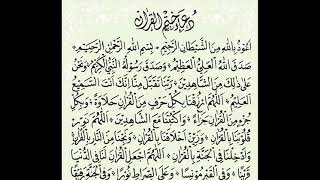 دُعَاءُ خَتْمِ الْقُرْآنِ
أَعُوذُ بِاللهِ مِنَ الشَّيْطَانِ الرَّجِيْمِ ۞ بِسْمِ اللهِ الرَّحْمٰنِ الرَّحِيْمِ ۞
صَدَقَ اللهُ الْعَلِيُّ الْعَظِيْمُ ۞ وَصَدَقَ رَسُوْلُهُ النَّبِيُّ الْكَرِيْمُ ۞ وَنَحْنُ
عَلٰى ذٰلِكَ مِنَ الشَّاهِدِيْنَ ۞ رَبَّنَا تَقَبَّلْ مِنَّا إِنَّكَ أَنْتَ السَّمِيْعُ
الْعَلِيْمُ ۞ اَللّٰهُمَّ ارْزُقْنَا بِكُلِّ حَرْفٍ مِنَ الْقُرْاٰنِ حَلَاوَةً ۞ وَبِكُلِّ
جُزْءٍ مِنَ الْقُرْاٰنِ جَزَاءً ۞ وَاكْتُبْنَا مَعَ الشَّاهِدِيْنَ ۞ اَللّٰهُمَّ نَوِّرْ
قُلُوْبَنَا بِالْقُرْاٰنِ ۞ وَزَيِّنْ أَخْلَاقَنَا بِالْقُرْاٰنِ ۞ وَنَجِّنَا مِنَ النَّارِ بِالْقُرْاٰنِ ۞
وَأَدْخِلْنَا فِي الْجَنَّةِ بِالْقُرْاٰنِ ۞ اَللّٰهُمَّ اجْعَلِ الْقُرْاٰنَ لَنَا فِي الدُّنْيَا
قَرِيْنًا ۞ وَفِي الْقَبْرِ مُوْنِسًا ۞ وَعَلَى الصِّرَاطِ نُوْرًا ۞ وَفِي الْجَنَّةِ رَفِيْقًا